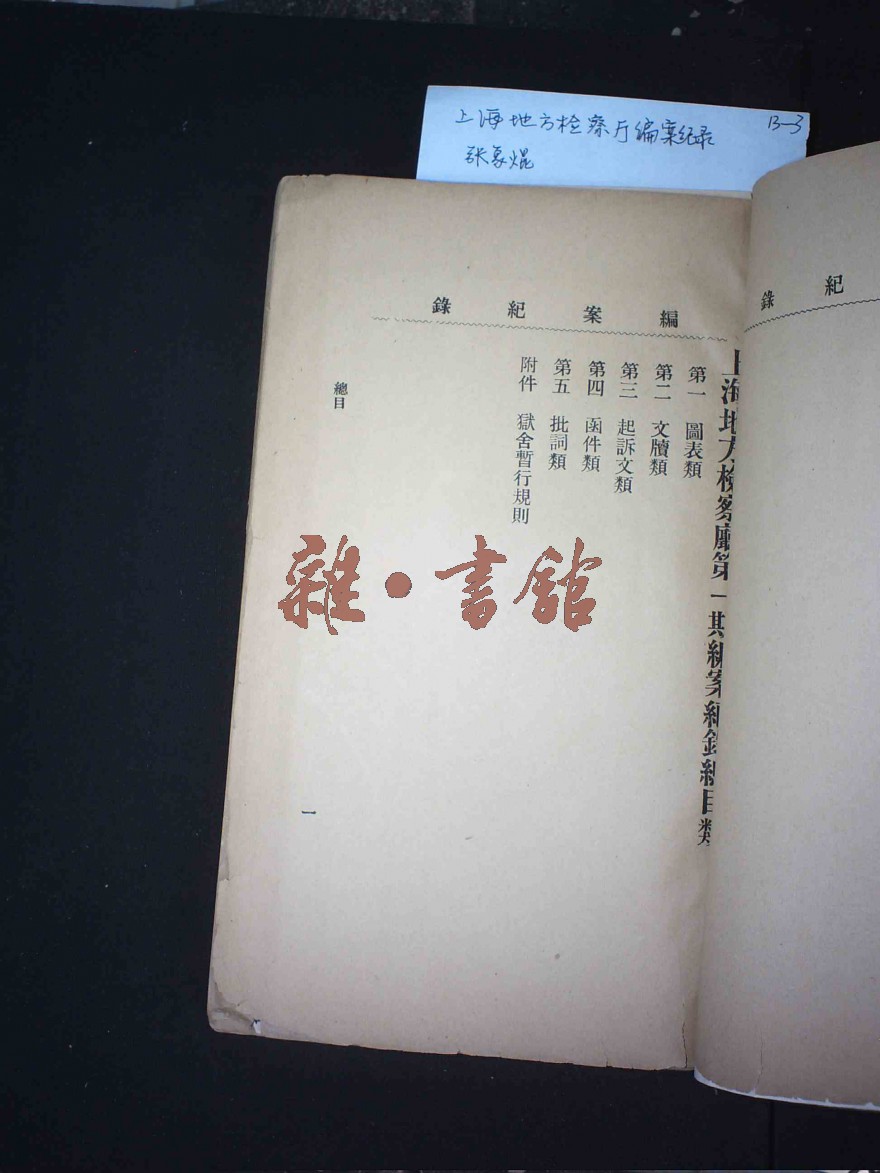 上海地方检察厅编案纪录
13-3
张象焜
編案紀錄
紀錄
上海地方檢察廳第一期編案紀錄總目類
第一　圖表類
第二　文牘類
第三　起訴文類
第四　函件類
第五　批詞類
附件　獄舍暫行規則
總目
一
雜·書館